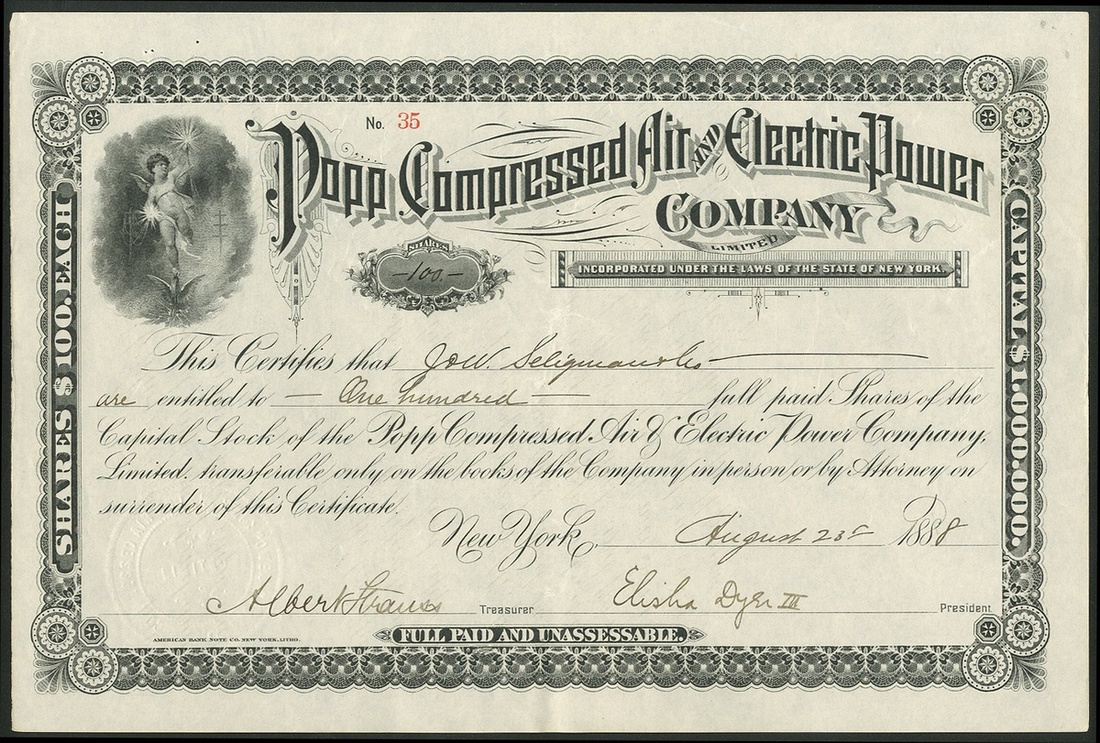 No. 35
Popp Compressed Air AND Electric Power
COMPANY
LIMITED
SHARES
-100.-
INCORPORATED UNDER THE LAWS OF THE STATE OF NEW YORK.
SHARES $100. EACH
CAPITAL $1,000,000.00.
This Certifies that J & W. Seligman & Co
are entitled to — One hundred — full paid Shares of the
Capital Stock of the Popp Compressed Air & Electric Power Company,
Limited. transferable only on the books of the Company in person or by Attorney on
surrender of this Certificate.
New York, August 23d 1888
Albert Strauss Treasurer Elisha Dyer III President
AMERICAN BANK NOTE CO. NEW YORK, LITHO.
FULL PAID AND UNASSESSABLE.